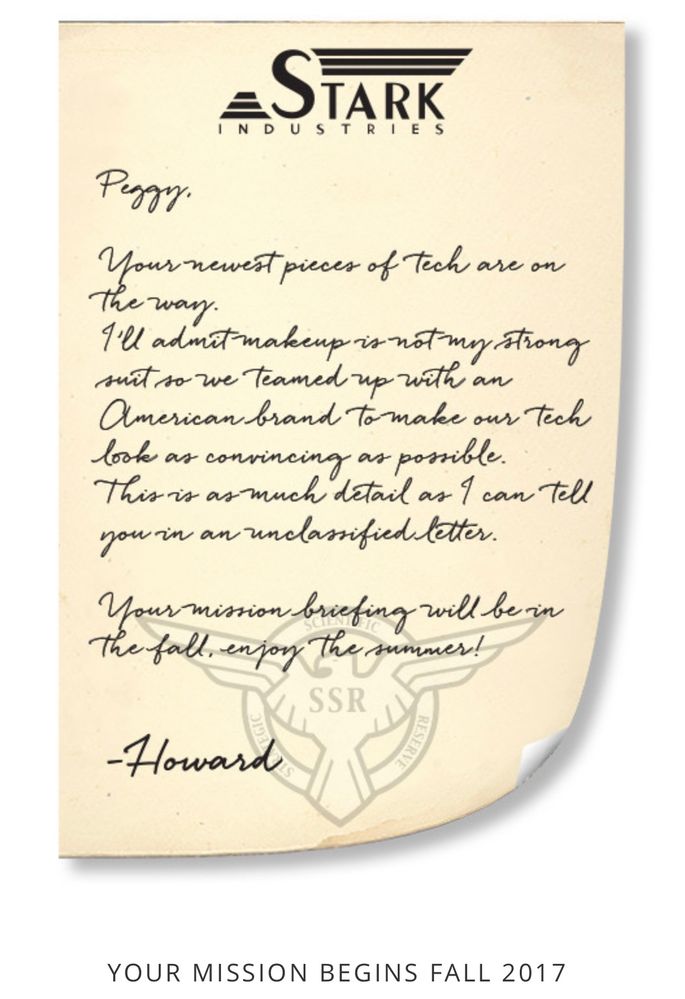 STARK
INDUSTRIES
Peggy,
Your newest pieces of tech are on
the way.
I'll admit makeup is not my strong
suit so we teamed up with an
American brand to make our tech
look as convincing as possible.
This is as much detail as I can tell
you in an unclassified letter.
Your mission briefing will be in
the fall, enjoy the summer!
SCIENTIFIC
SSR
STRATEGIC
RESERVE
-Howard
YOUR MISSION BEGINS FALL 2017